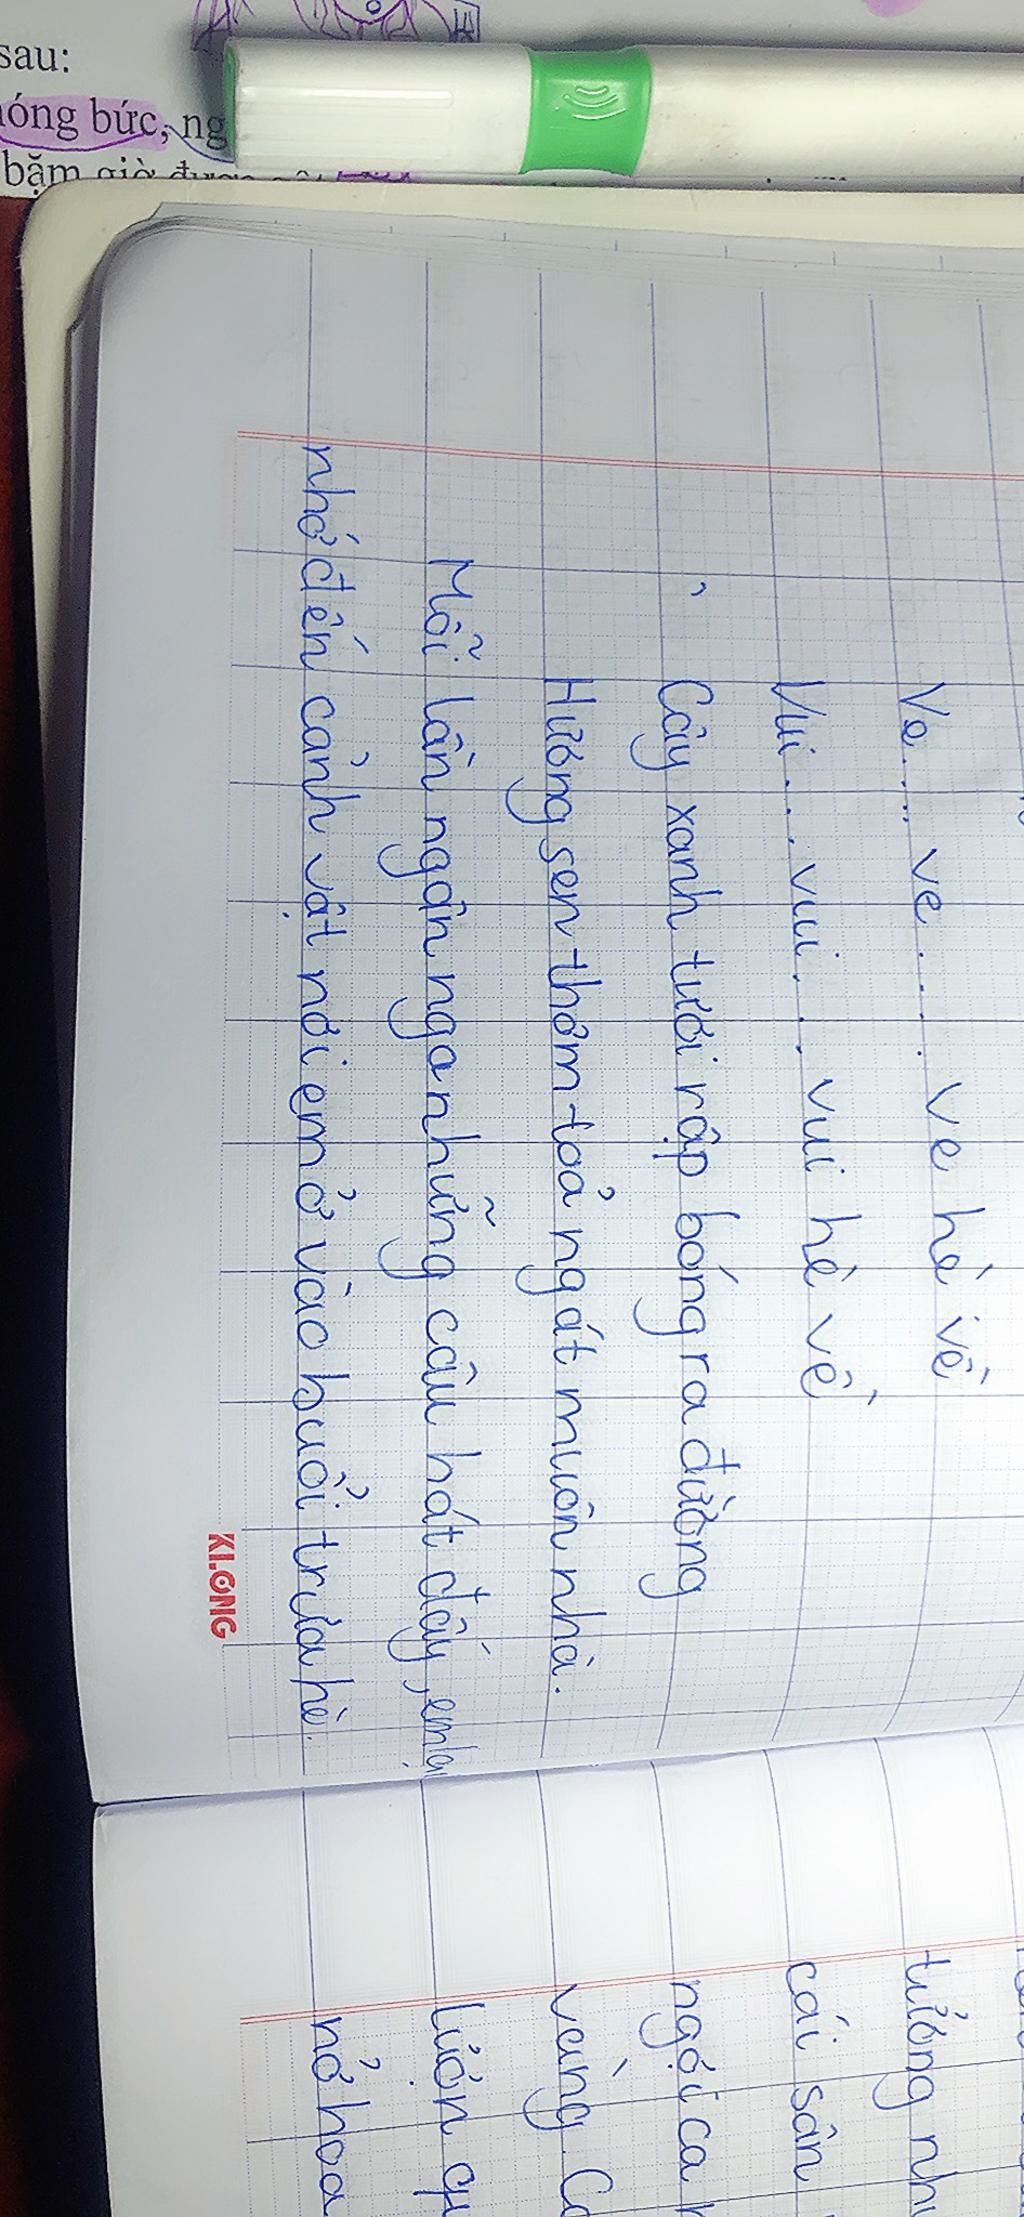 sau:
óng bức, ng
bặm giờ được
Ve.... ve..... ve hè về
Vui... vui... vui hè về
Cây xanh tươi rập bóng ra đường
Hương sen thơm toả ngát muôn nhà.
Mỗi lần ngân nga những câu hát đấy, em lại
nhớ đến cảnh vật nơi em ở vào buổi trưa hè.
KLONG
tưởng như
cái sân
ngói ca
vàng. Cá
lượn qu
nở hoa